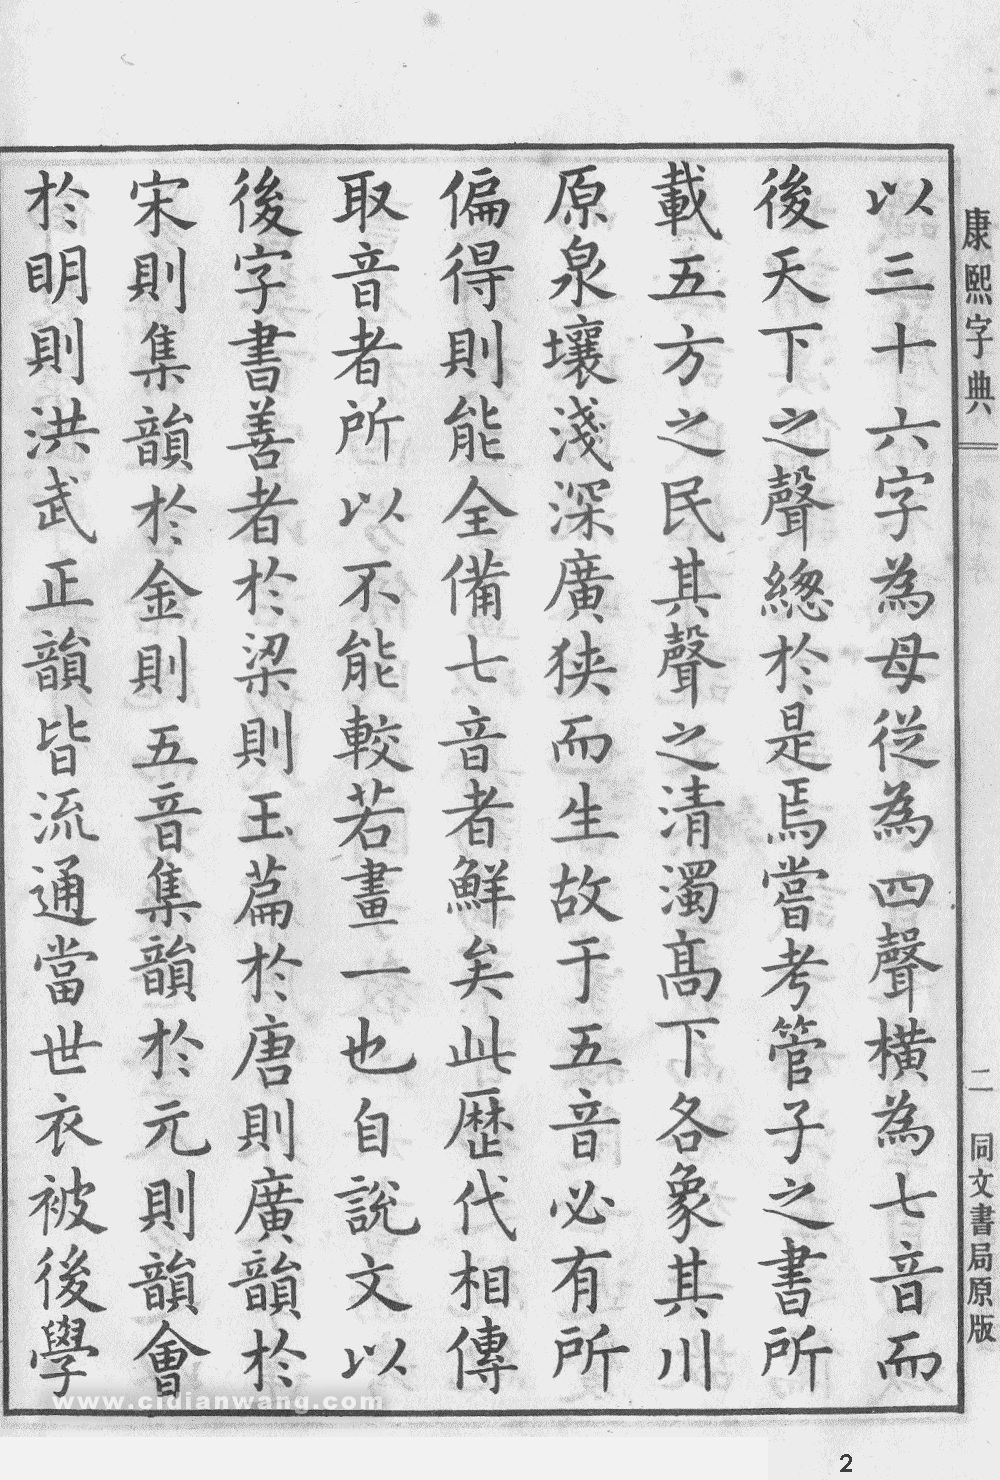 康熙字典
二
同文書局原版
以三十六字為母從為四聲橫為七音而
後天下之聲總於是焉嘗考管子之書所
載五方之民其聲之清濁高下各象其川
原泉壤淺深廣狹而生故于五音必有所
偏得則能全備七音者鮮矣此歷代相傳
取音者所以不能較若畫一也自說文以
後字書善者於梁則玉篇於唐則廣韻於
宋則集韻於金則五音集韻於元則韻會
於明則洪武正韻皆流通當世衣被後學
www.cidianwang.com
2